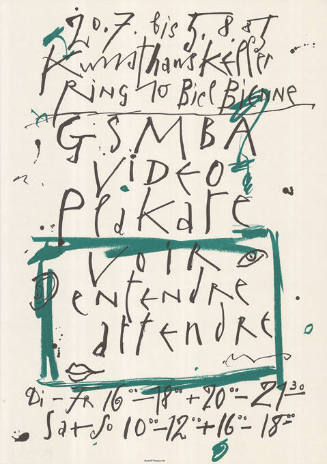 20.7. bis 5.8.85
Kunsthauskeller
Ring 10 Biel Bienne
GSMBA
VIDEO
Plakate
voir
entendre
attendre
Di - Fr 16°° - 18°° + 20°° - 21³⁰
Sa + So 10°° - 12°° + 16°° - 18°°